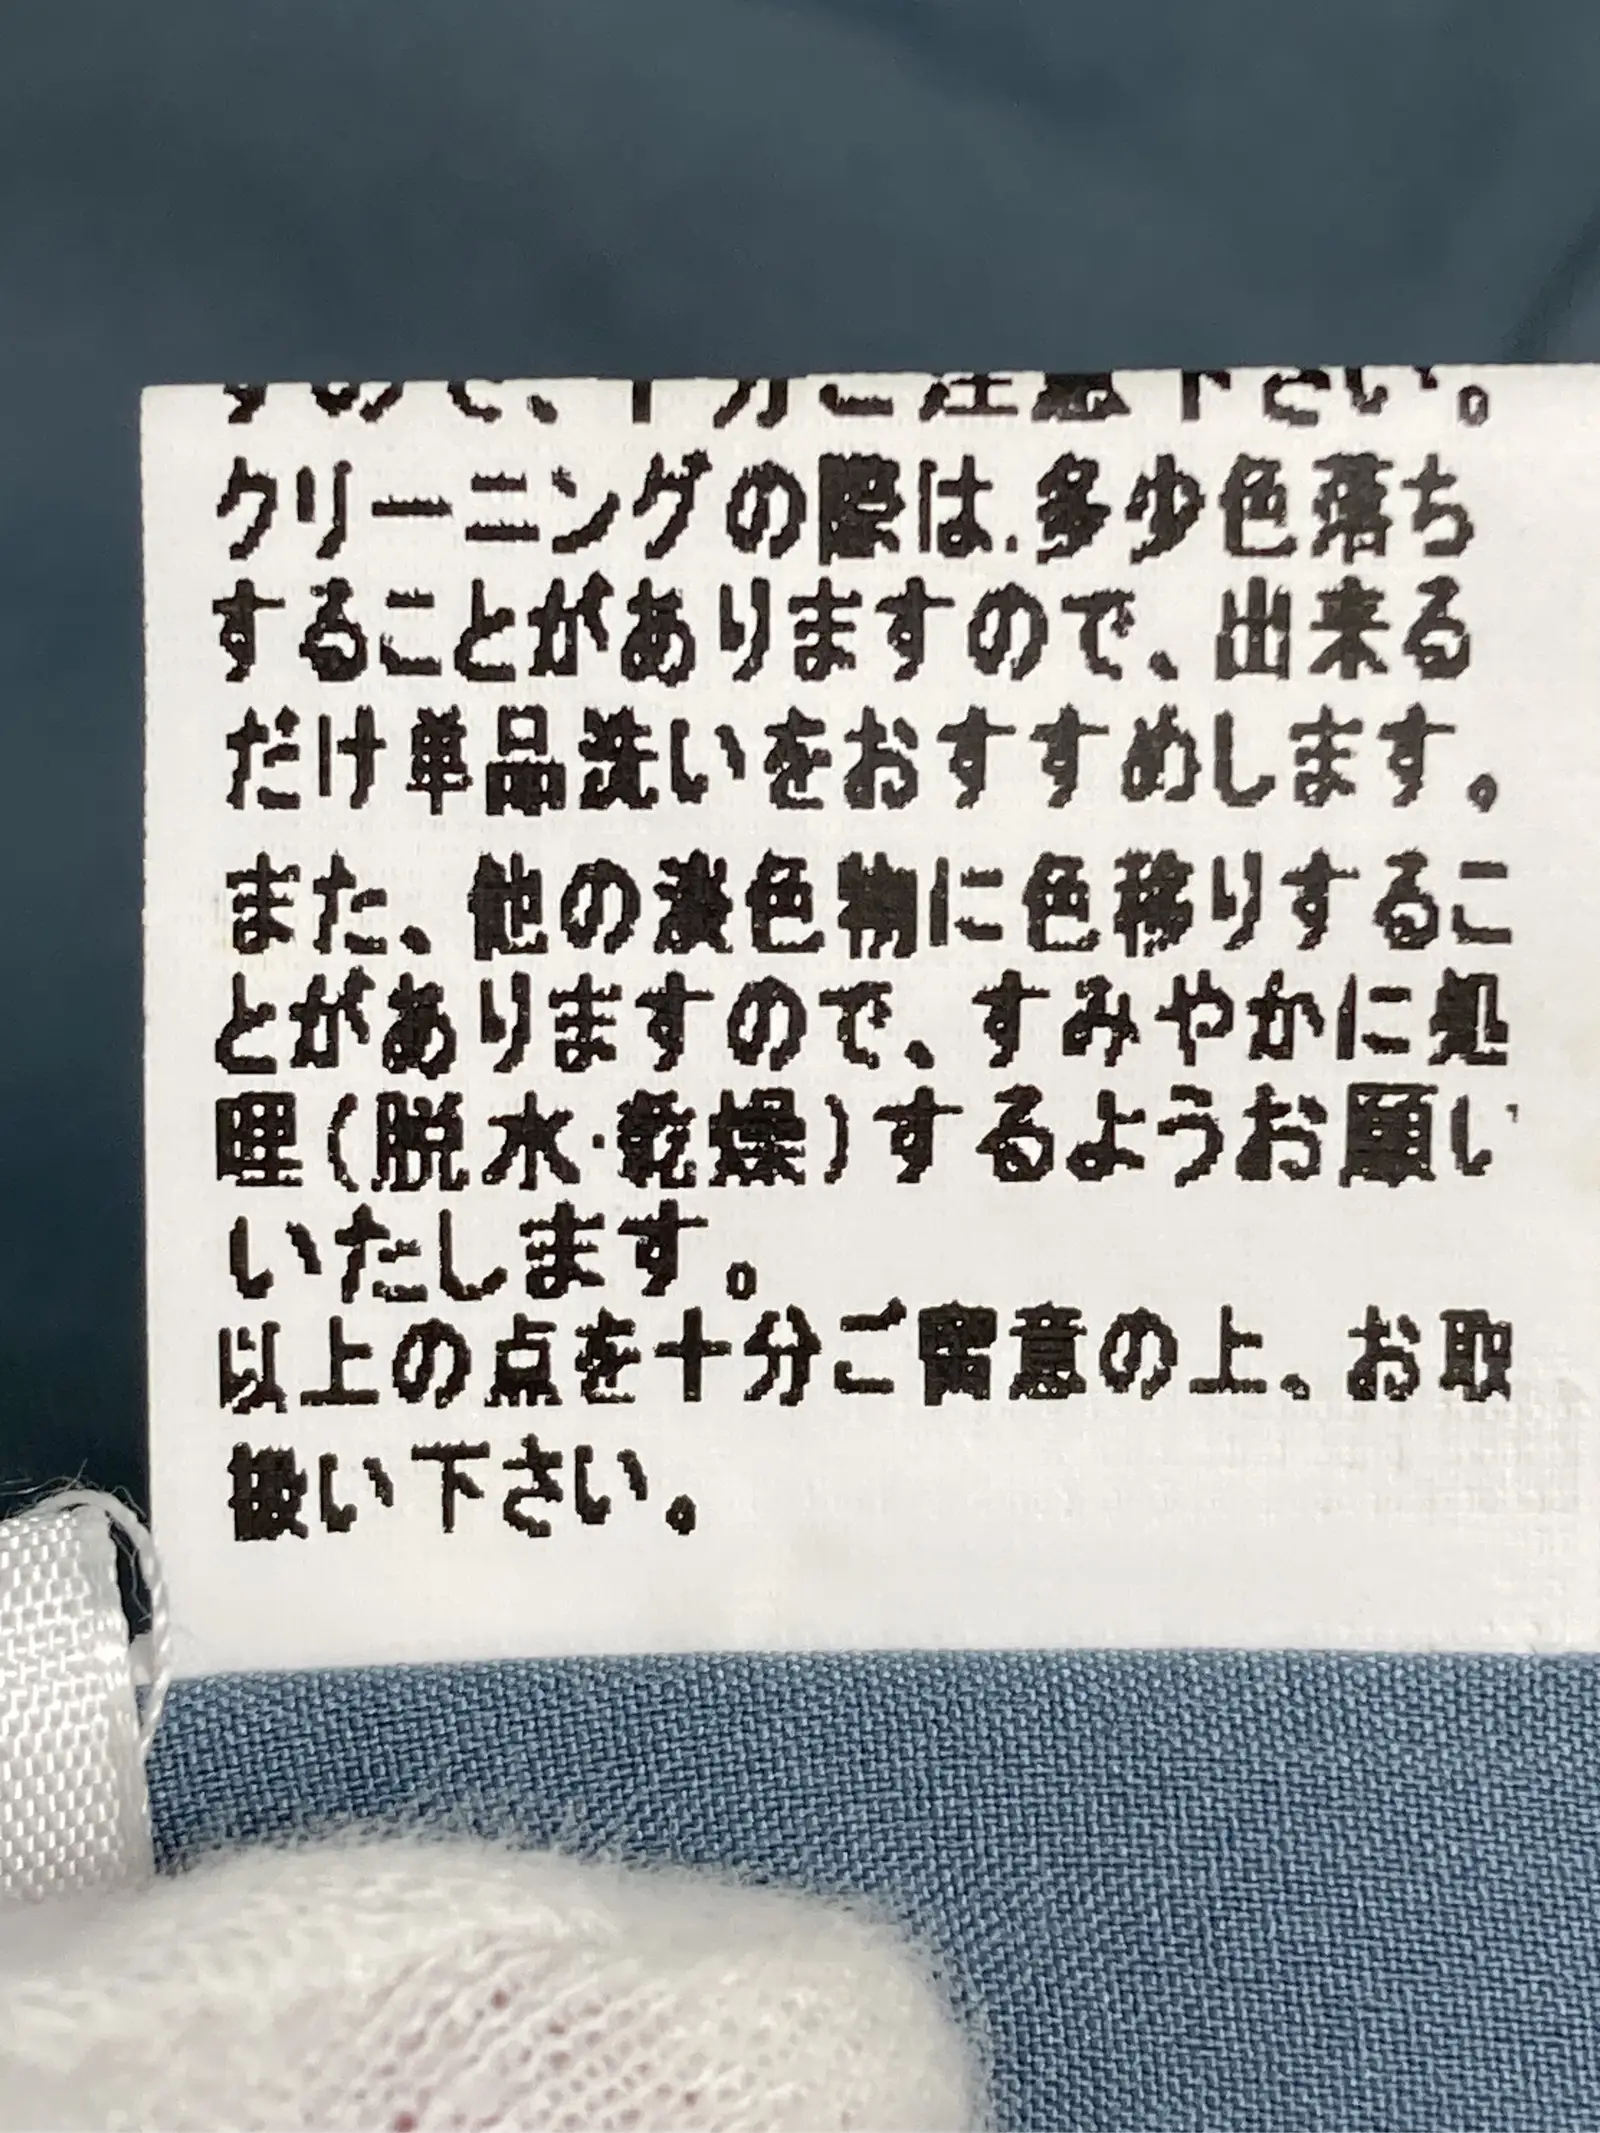 すので、十分ご注意下さい。
クリーニングの際は、多少色落ち
することがありますので、出来る
だけ単品洗いをおすすめします。
また、他の淡色物に色移りするこ
とがありますので、すみやかに処
理(脱水・乾燥)するようお願い
いたします。
以上の点を十分ご留意の上、お取
扱い下さい。